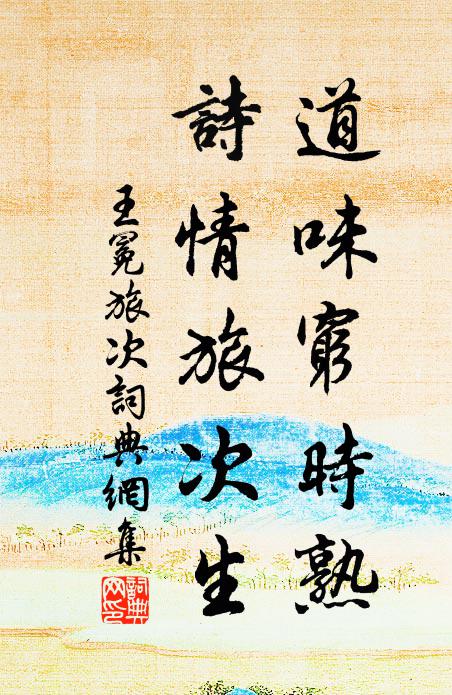 道味窮時熟
詩情旅次生
王冕旅次詞典網集
詞典網印